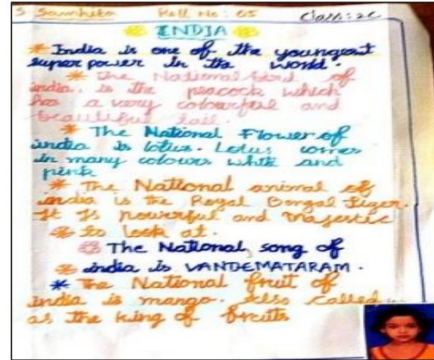 S Samhita Roll No: 05 Class: 2C
INDIA
* India is one of the youngest
super power in the world.
* The National bird of
india. is the peacock which
has a very colourful and
beautiful tail.
* The National Flower of
india is lotus. Lotus comes
in many colours white and
pink
* The National animal of
india is the Royal Bengal Tiger.
It is powerful and Majestic
to look at.
The National song of
india is VANDEMATARAM.
* The National fruit of
india is mango. Also called
as the king of fruits